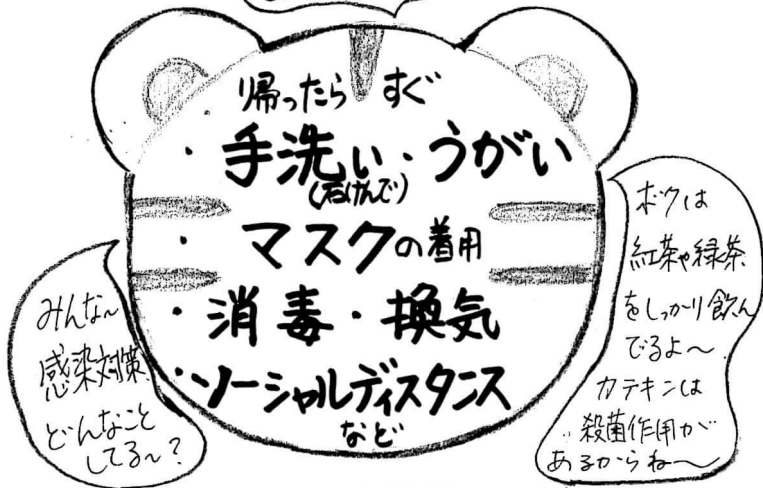 帰ったら すぐ
・手洗い・うがい
(石けんで)
・マスクの着用
・消毒・換気
・ソーシャルディスタンス
など
みんな〜
感染対策
どんなこと
してる〜?
ボクは
紅茶や緑茶
をしっかり飲ん
でるよ〜
カテキンは
殺菌作用が
あるからね〜